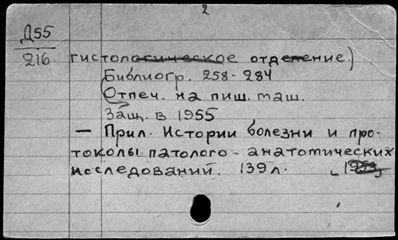 2
Д55
216. гистологическое отделение.)
Библиогр. 258-284
Отпеч. на пиш. маш.
Защ. в 1955
— Прил. Истории болезни и про-
токолы патолого-анатомических
исследований. 139л.